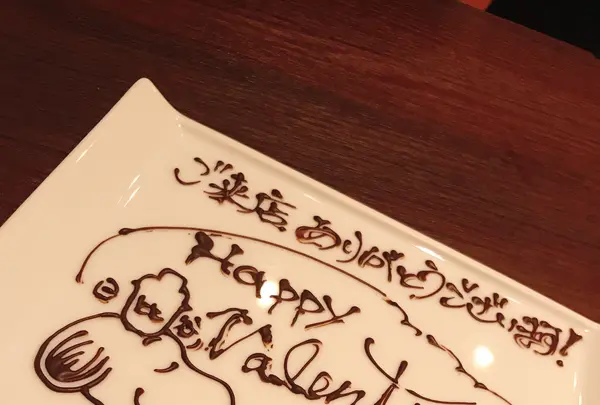 ご来店ありがとうございます!
Happy
Valent